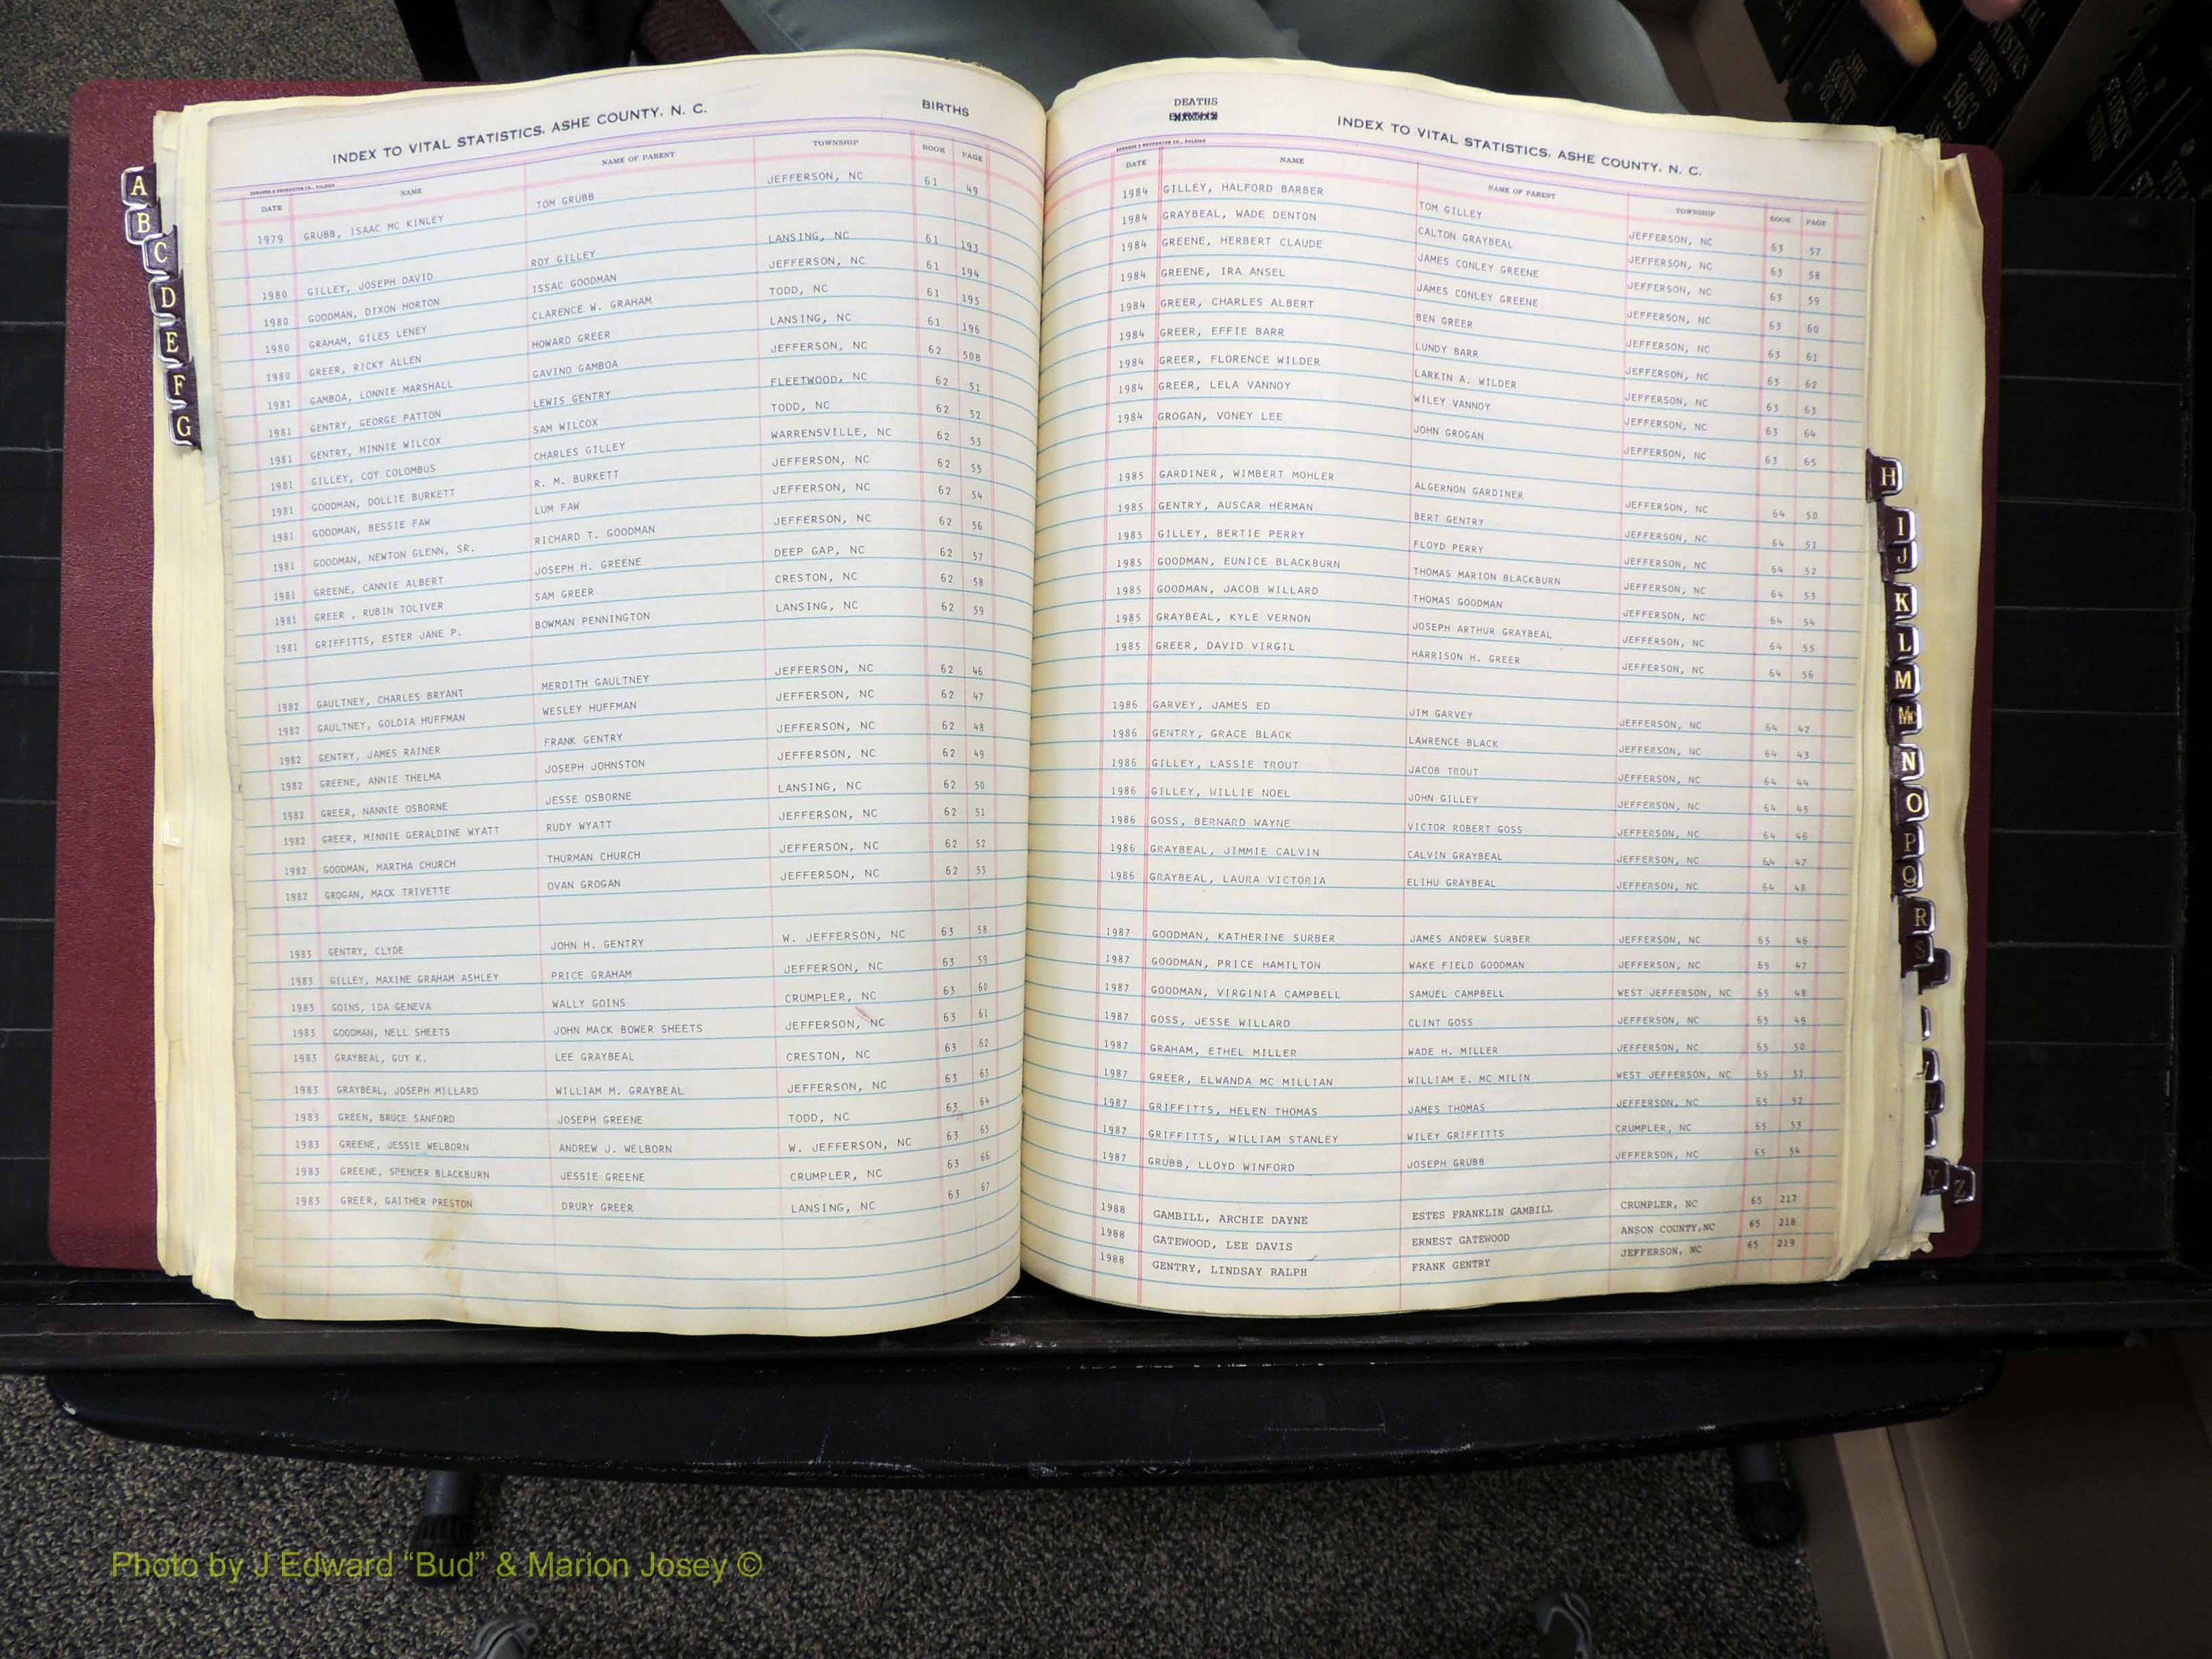 INDEX TO VITAL STATISTICS, ASHE COUNTY, N. C. BIRTHS
DATE NAME NAME OF PARENT TOWNSHIP BOOK PAGE
1979 GRUBB, ISAAC MC KINLEY TOM GRUBB JEFFERSON, NC 61 49
1980 GILLEY, JOSEPH DAVID ROY GILLEY LANSING, NC 61 193
1980 GOODMAN, DIXON HORTON ISSAC GOODMAN JEFFERSON, NC 61 194
1980 GRAHAM, GILES LENEY CLARENCE W. GRAHAM TODD, NC 61 195
1980 GREER, RICKY ALLEN HOWARD GREER LANSING, NC 61 196
1981 GAMBOA, LONNIE MARSHALL GAVINO GAMBOA JEFFERSON, NC 62 50B
1981 GENTRY, GEORGE PATTON LEWIS GENTRY FLEETWOOD, NC 62 51
1981 GENTRY, MINNIE WILCOX SAM WILCOX TODD, NC 62 52
1981 GILLEY, COY COLOMBUS CHARLES GILLEY WARRENSVILLE, NC 62 53
1981 GOODMAN, DOLLIE BURKETT R. M. BURKETT JEFFERSON, NC 62 55
1981 GOODMAN, BESSIE FAW LUM FAW JEFFERSON, NC 62 54
1981 GOODMAN, NEWTON GLENN, SR. RICHARD T. GOODMAN JEFFERSON, NC 62 56
1981 GREENE, CANNIE ALBERT JOSEPH H. GREENE DEEP GAP, NC 62 57
1981 GREER , RUBIN TOLIVER SAM GREER CRESTON, NC 62 58
1981 GRIFFITTS, ESTER JANE P. BOWMAN PENNINGTON LANSING, NC 62 59
1982 GAULTNEY, CHARLES BRYANT MERDITH GAULTNEY JEFFERSON, NC 62 46
1982 GAULTNEY, GOLDIA HUFFMAN WESLEY HUFFMAN JEFFERSON, NC 62 47
1982 GENTRY, JAMES RAINER FRANK GENTRY JEFFERSON, NC 62 48
1982 GREENE, ANNIE THELMA JOSEPH JOHNSTON JEFFERSON, NC 62 49
1982 GREER, NANNIE OSBORNE JESSE OSBORNE LANSING, NC 62 50
1982 GREER, MINNIE GERALDINE WYATT RUDY WYATT JEFFERSON, NC 62 51
1982 GOODMAN, MARTHA CHURCH THURMAN CHURCH JEFFERSON, NC 62 52
1982 GROGAN, MACK TRIVETTE OVAN GROGAN JEFFERSON, NC 62 53
1983 GENTRY, CLYDE JOHN H. GENTRY W. JEFFERSON, NC 63 58
1983 GILLEY, MAXINE GRAHAM ASHLEY PRICE GRAHAM JEFFERSON, NC 63 59
1983 GOINS, IDA GENEVA WALLY GOINS CRUMPLER, NC 63 60
1983 GOODMAN, NELL SHEETS JOHN MACK BOWER SHEETS JEFFERSON, NC 63 61
1983 GRAYBEAL, GUY K. LEE GRAYBEAL CRESTON, NC 63 62
1983 GRAYBEAL, JOSEPH MILLARD WILLIAM M. GRAYBEAL JEFFERSON, NC 63 63
1983 GREEN, BRUCE SANFORD JOSEPH GREENE TODD, NC 63 64
1983 GREENE, JESSIE WELBORN ANDREW J. WELBORN W. JEFFERSON, NC 63 65
1983 GREENE, SPENCER BLACKBURN JESSIE GREENE CRUMPLER, NC 63 66
1983 GREER, GAITHER PRESTON DRURY GREER LANSING, NC 63 67
DEATHS INDEX TO VITAL STATISTICS, ASHE COUNTY, N. C.
DATE NAME NAME OF PARENT TOWNSHIP BOOK PAGE
1984 GILLEY, HALFORD BARBER TOM GILLEY JEFFERSON, NC 63 57
1984 GRAYBEAL, WADE DENTON CALTON GRAYBEAL JEFFERSON, NC 63 58
1984 GREENE, HERBERT CLAUDE JAMES CONLEY GREENE JEFFERSON, NC 63 59
1984 GREENE, IRA ANSEL JAMES CONLEY GREENE JEFFERSON, NC 63 60
1984 GREER, CHARLES ALBERT BEN GREER JEFFERSON, NC 63 61
1984 GREER, EFFIE BARR LUNDY BARR JEFFERSON, NC 63 62
1984 GREER, FLORENCE WILDER LARKIN A. WILDER JEFFERSON, NC 63 63
1984 GREER, LELA VANNOY WILEY VANNOY JEFFERSON, NC 63 64
1984 GROGAN, VONEY LEE JOHN GROGAN JEFFERSON, NC 63 65
1985 GARDINER, WIMBERT MOHLER ALGERNON GARDINER JEFFERSON, NC 64 50
1985 GENTRY, AUSCAR HERMAN BERT GENTRY JEFFERSON, NC 64 51
1985 GILLEY, BERTIE PERRY FLOYD PERRY JEFFERSON, NC 64 52
1985 GOODMAN, EUNICE BLACKBURN THOMAS MARION BLACKBURN JEFFERSON, NC 64 53
1985 GOODMAN, JACOB WILLARD THOMAS GOODMAN JEFFERSON, NC 64 54
1985 GRAYBEAL, KYLE VERNON JOSEPH ARTHUR GRAYBEAL JEFFERSON, NC 64 55
1985 GREER, DAVID VIRGIL HARRISON H. GREER JEFFERSON, NC 64 56
1986 GARVEY, JAMES ED JIM GARVEY JEFFERSON, NC 64 42
1986 GENTRY, GRACE BLACK LAWRENCE BLACK JEFFERSON, NC 64 43
1986 GILLEY, LASSIE TROUT JACOB TROUT JEFFERSON, NC 64 44
1986 GILLEY, WILLIE NOEL JOHN GILLEY JEFFERSON, NC 64 45
1986 GOSS, BERNARD WAYNE VICTOR ROBERT GOSS JEFFERSON, NC 64 46
1986 GRAYBEAL, JIMMIE CALVIN CALVIN GRAYBEAL JEFFERSON, NC 64 47
1986 GRAYBEAL, LAURA VICTORIA ELIHU GRAYBEAL JEFFERSON, NC 64 48
1987 GOODMAN, KATHERINE SURBER JAMES ANDREW SURBER JEFFERSON, NC 65 46
1987 GOODMAN, PRICE HAMILTON WAKE FIELD GOODMAN JEFFERSON, NC 65 47
1987 GOODMAN, VIRGINIA CAMPBELL SAMUEL CAMPBELL WEST JEFFERSON, NC 65 48
1987 GOSS, JESSE WILLARD CLINT GOSS JEFFERSON, NC 65 49
1987 GRAHAM, ETHEL MILLER WADE H. MILLER JEFFERSON, NC 65 50
1987 GREER, ELWANDA MC MILLIAN WILLIAM E. MC MILIN WEST JEFFERSON, NC 65 51
1987 GRIFFITTS, HELEN THOMAS JAMES THOMAS JEFFERSON, NC 65 52
1987 GRIFFITTS, WILLIAM STANLEY WILEY GRIFFITTS CRUMPLER, NC 65 53
1987 GRUBB, LLOYD WINFORD JOSEPH GRUBB JEFFERSON, NC 65 54
1988 GAMBILL, ARCHIE DAYNE ESTES FRANKLIN GAMBILL CRUMPLER, NC 65 217
1988 GATEWOOD, LEE DAVIS ERNEST GATEWOOD ANSON COUNTY,NC 65 218
1988 GENTRY, LINDSAY RALPH FRANK GENTRY JEFFERSON, NC 65 219
A
B
C
D
E
F
G
H
I
J
K
L
M
Mc
N
O
P
Q
R
S
Y
Z
BIRTHS
1963
Photo by J Edward “Bud” & Marion Josey ©